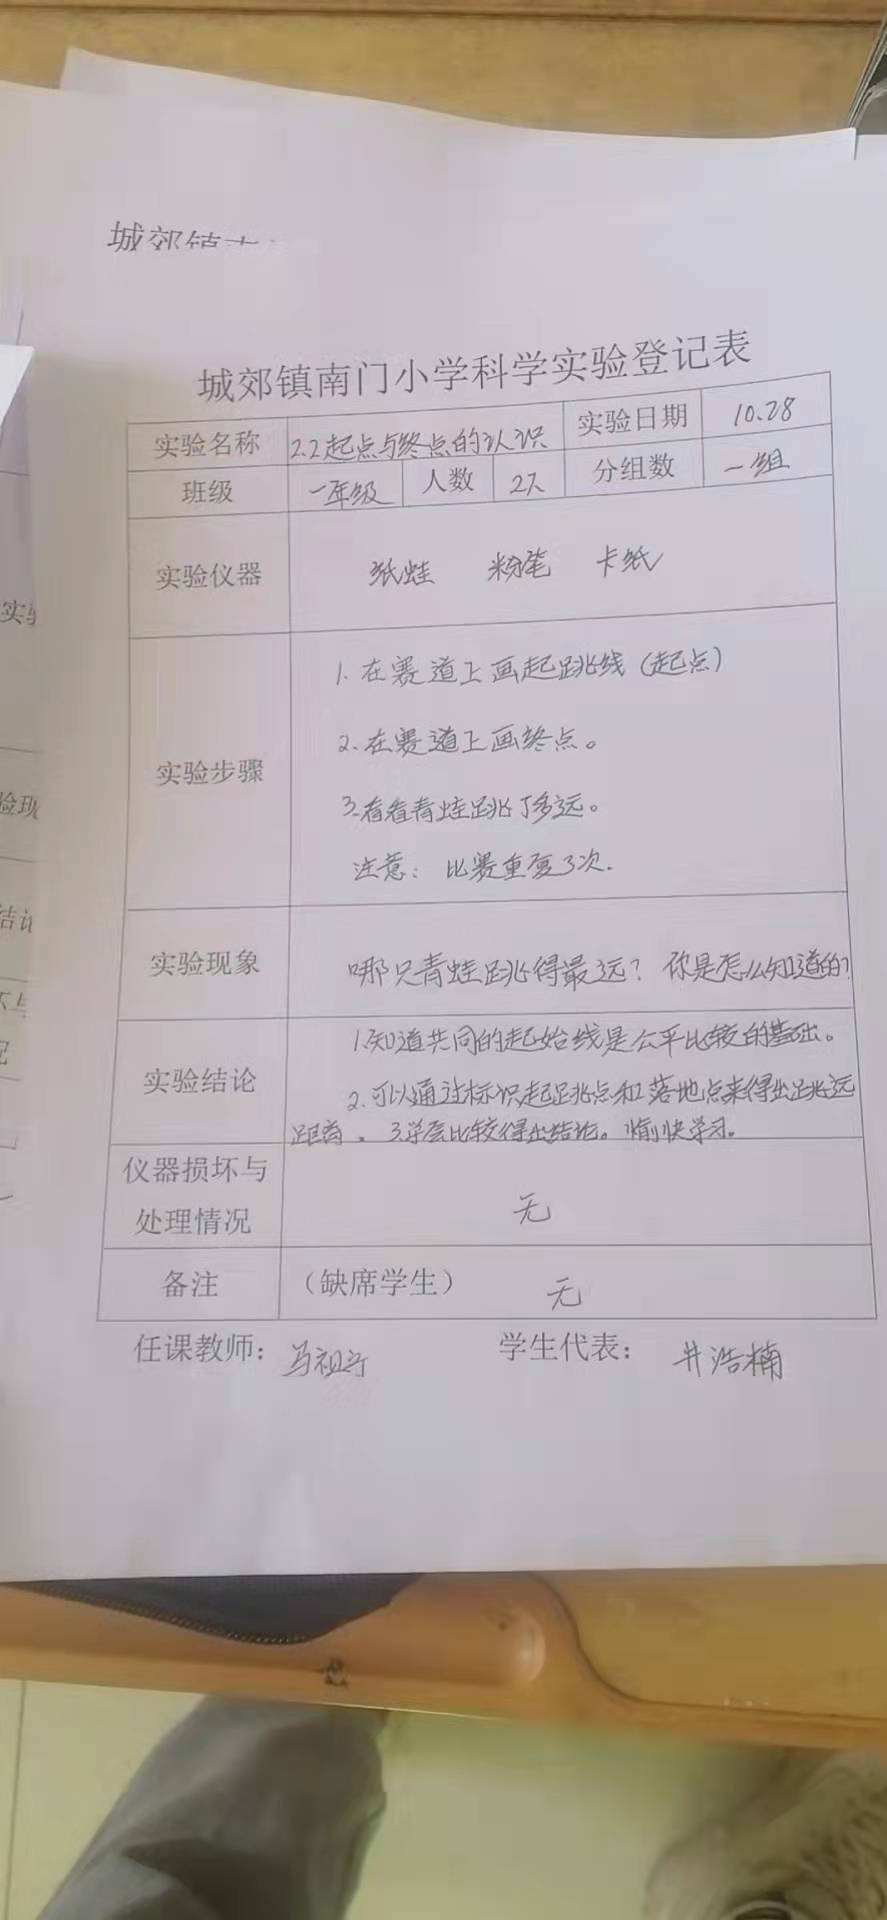 城郊镇
城郊镇南门小学科学实验登记表
实验名称 2.2起点与终点的认识 实验日期 10.28
班级 一年级 人数 2人 分组数 一组
实验仪器 纸蛙 粉笔 卡纸
实验步骤
1.在赛道上画起跳线(起点)
2.在赛道上画终点。
3.看看青蛙跳了多远。
注意：比赛重复3次.
实验现象 哪只青蛙跳得最远？你是怎么知道的？
实验结论
1.知道共同的起始线是公平比较的基础。
2.可以通过标识起跳点和落地点来得出跳远
距离。3.学会比较得出结论。愉快学习。
仪器损坏与
处理情况
无
备注 （缺席学生） 无
任课教师： 马祖 学生代表： 井浩楠
实验
验现
结论